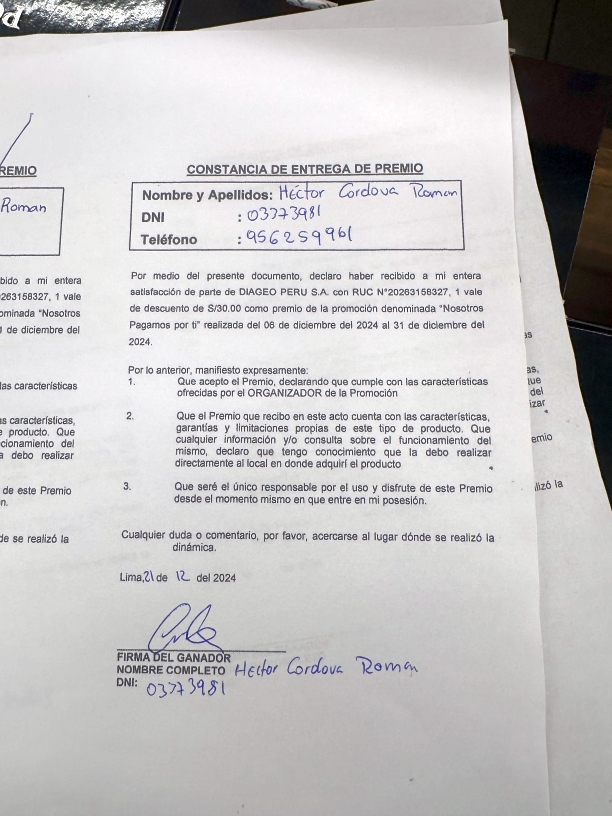 REMIO
Roman
bido a mi entera
20263158327, 1 vale
ominada "Nosotros
de diciembre del
las características
as características,
e producto. Que
cionamiento del
a debo realizar
de este Premio
n.
de se realizó la
CONSTANCIA DE ENTREGA DE PREMIO
Nombre y Apellidos: Héctor Cordova Roman
DNI : 03773981
Teléfono : 956259961
Por medio del presente documento, declaro haber recibido a mi entera
satisfacción de parte de DIAGEO PERU S.A. con RUC N°20263158327, 1 vale
de descuento de S/30.00 como premio de la promoción denominada "Nosotros
Pagamos por ti" realizada del 06 de diciembre del 2024 al 31 de diciembre del
2024.
Por lo anterior, manifiesto expresamente:
1. Que acepto el Premio, declarando que cumple con las características
ofrecidas por el ORGANIZADOR de la Promoción
2. Que el Premio que recibo en este acto cuenta con las características,
garantías y limitaciones propias de este tipo de producto. Que
cualquier información y/o consulta sobre el funcionamiento del
mismo, declaro que tengo conocimiento que la debo realizar
directamente al local en donde adquirí el producto
3. Que seré el único responsable por el uso y disfrute de este Premio
desde el momento mismo en que entre en mi posesión.
Cualquier duda o comentario, por favor, acercarse al lugar dónde se realizó la
dinámica.
Lima,21 de 12 del 2024
FIRMA DEL GANADOR
NOMBRE COMPLETO Héctor Cordova Roman
DNI: 03773981
as
as,
ue
del
izar
emio
lizó la